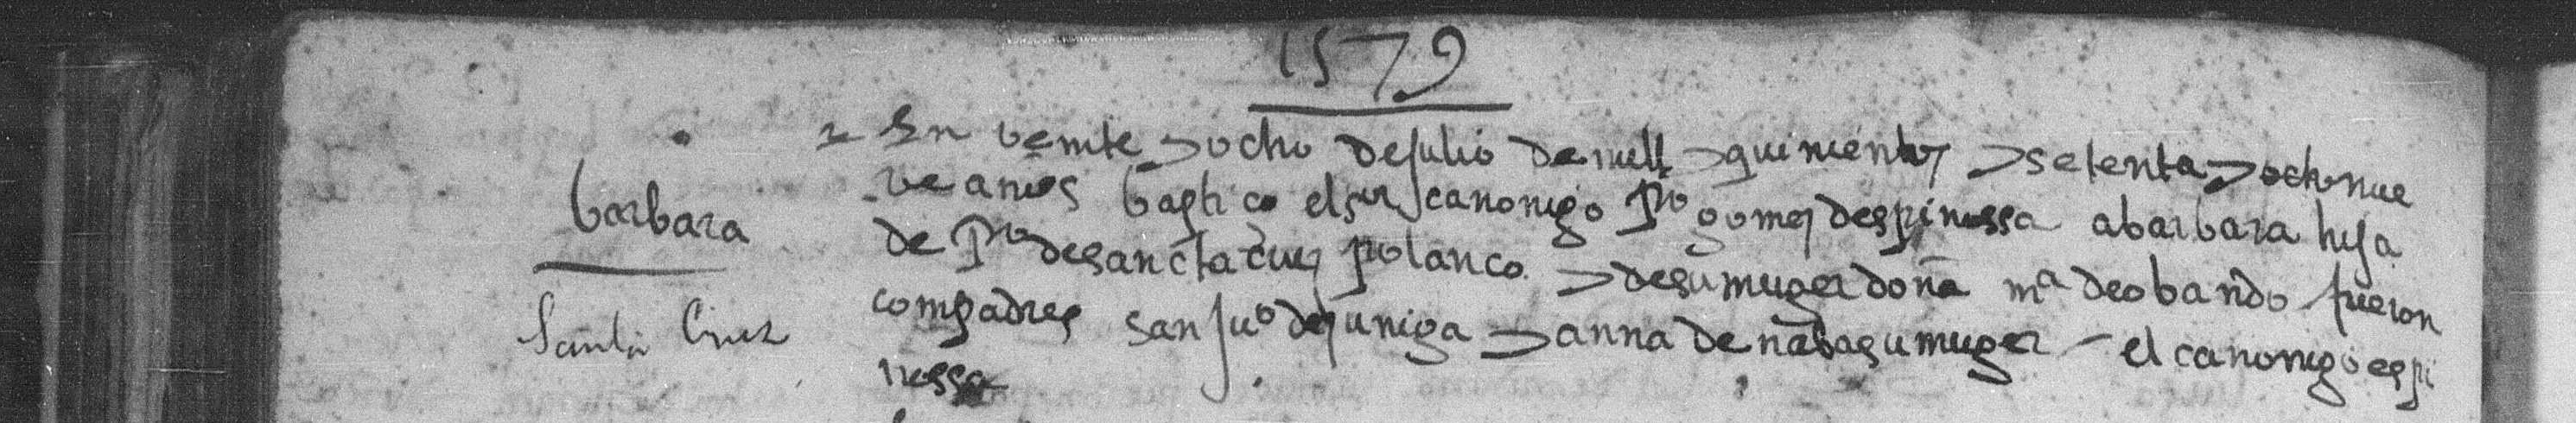 1579
barbara
Santa Cruz
En veinte y ocho de Julio de mill y quinientos y setenta y ocho nue
ve años baptiço el sor canonigo po gomez despinossa a barbara hija
de Po de sancta cruz polanco y de su muger doña ma de obando fueron
compadres san juo de çuniga y anna de naba su muger el canonigo espi
nossa